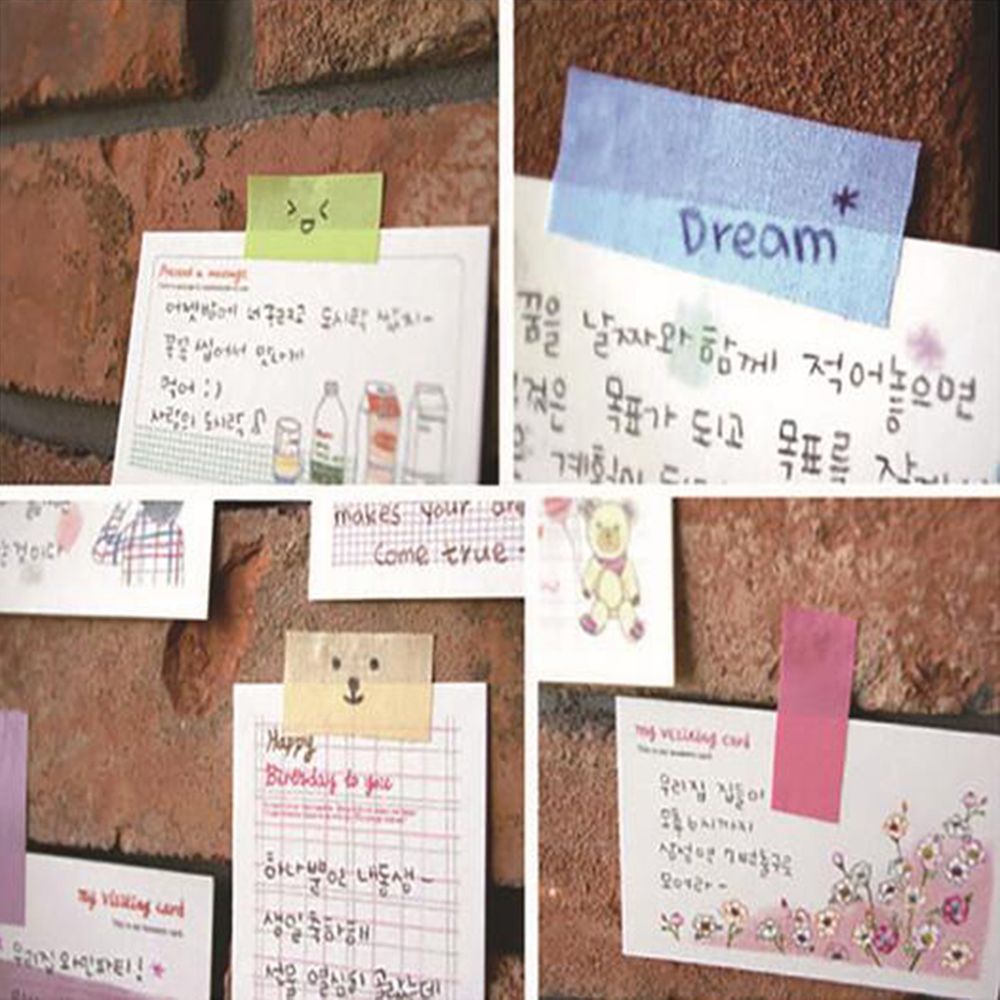 Present a message
어젯밤에 너구리고 도시락 쌌지~
꼭꼭 씹어서 맛나게
먹어 :)
사랑의 도시락
Dream*
꿈을 날짜와 함께 적어놓으면
그것은 목표가 되고 목표를
계획이
는것이다
makes your
come true
Happy
Birthday to you
하나뿐인 내동생~
생일축하해
선물 열심히 골랐는데
my visiting card
우리집 와인파티!
my visiting card
This is my business card
우리집 집들이
오후 6시까지
삼성역 7번출구로
모여라~